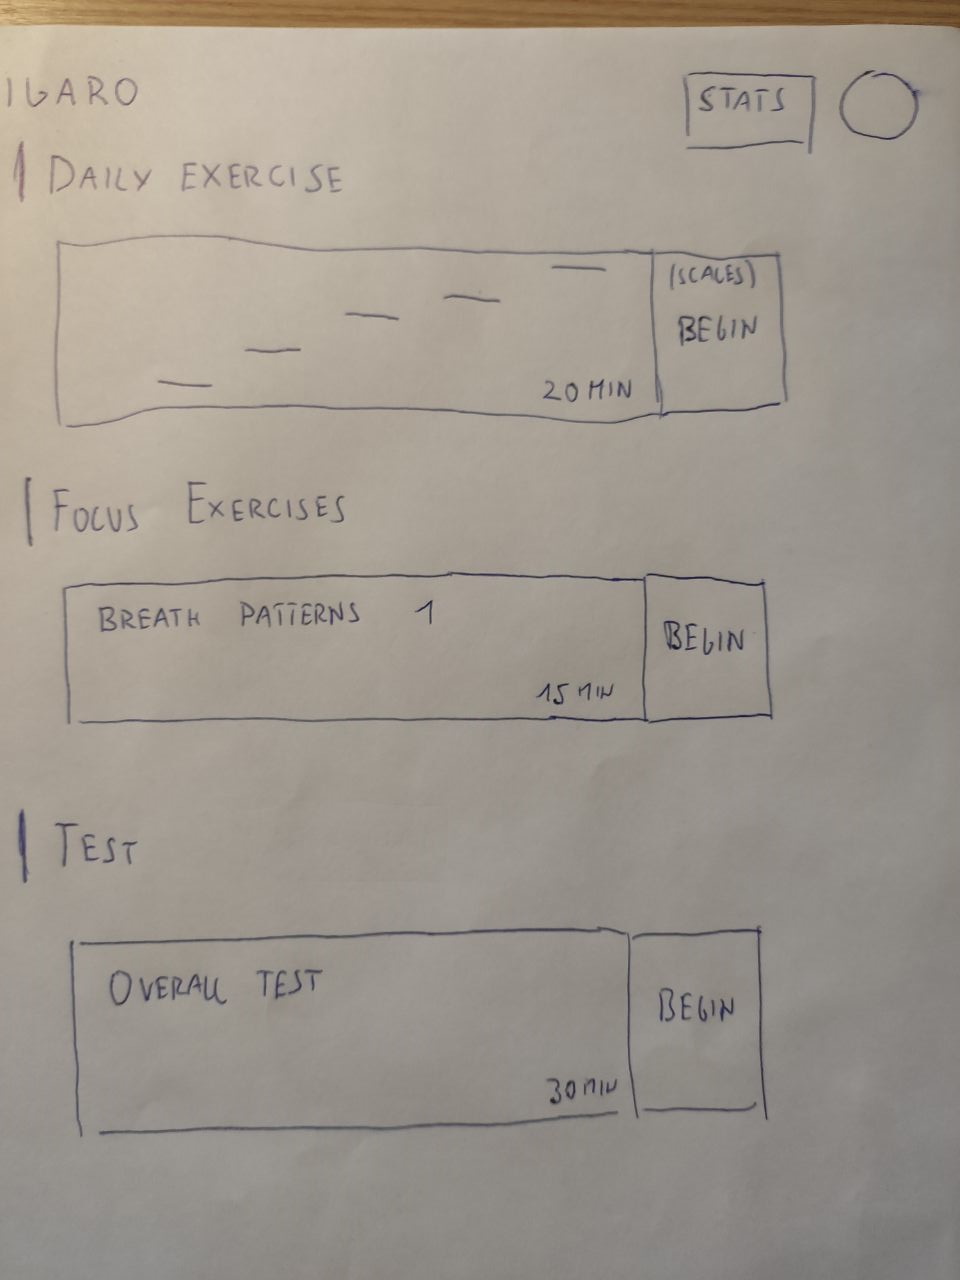 IGARO
STATS
DAILY EXERCISE
(SCALES)
BEGIN
20 MIN
FOCUS EXERCISES
BREATH PATTERNS 1
BEGIN
15 MIN
TEST
OVERALL TEST
BEGIN
30 MIN